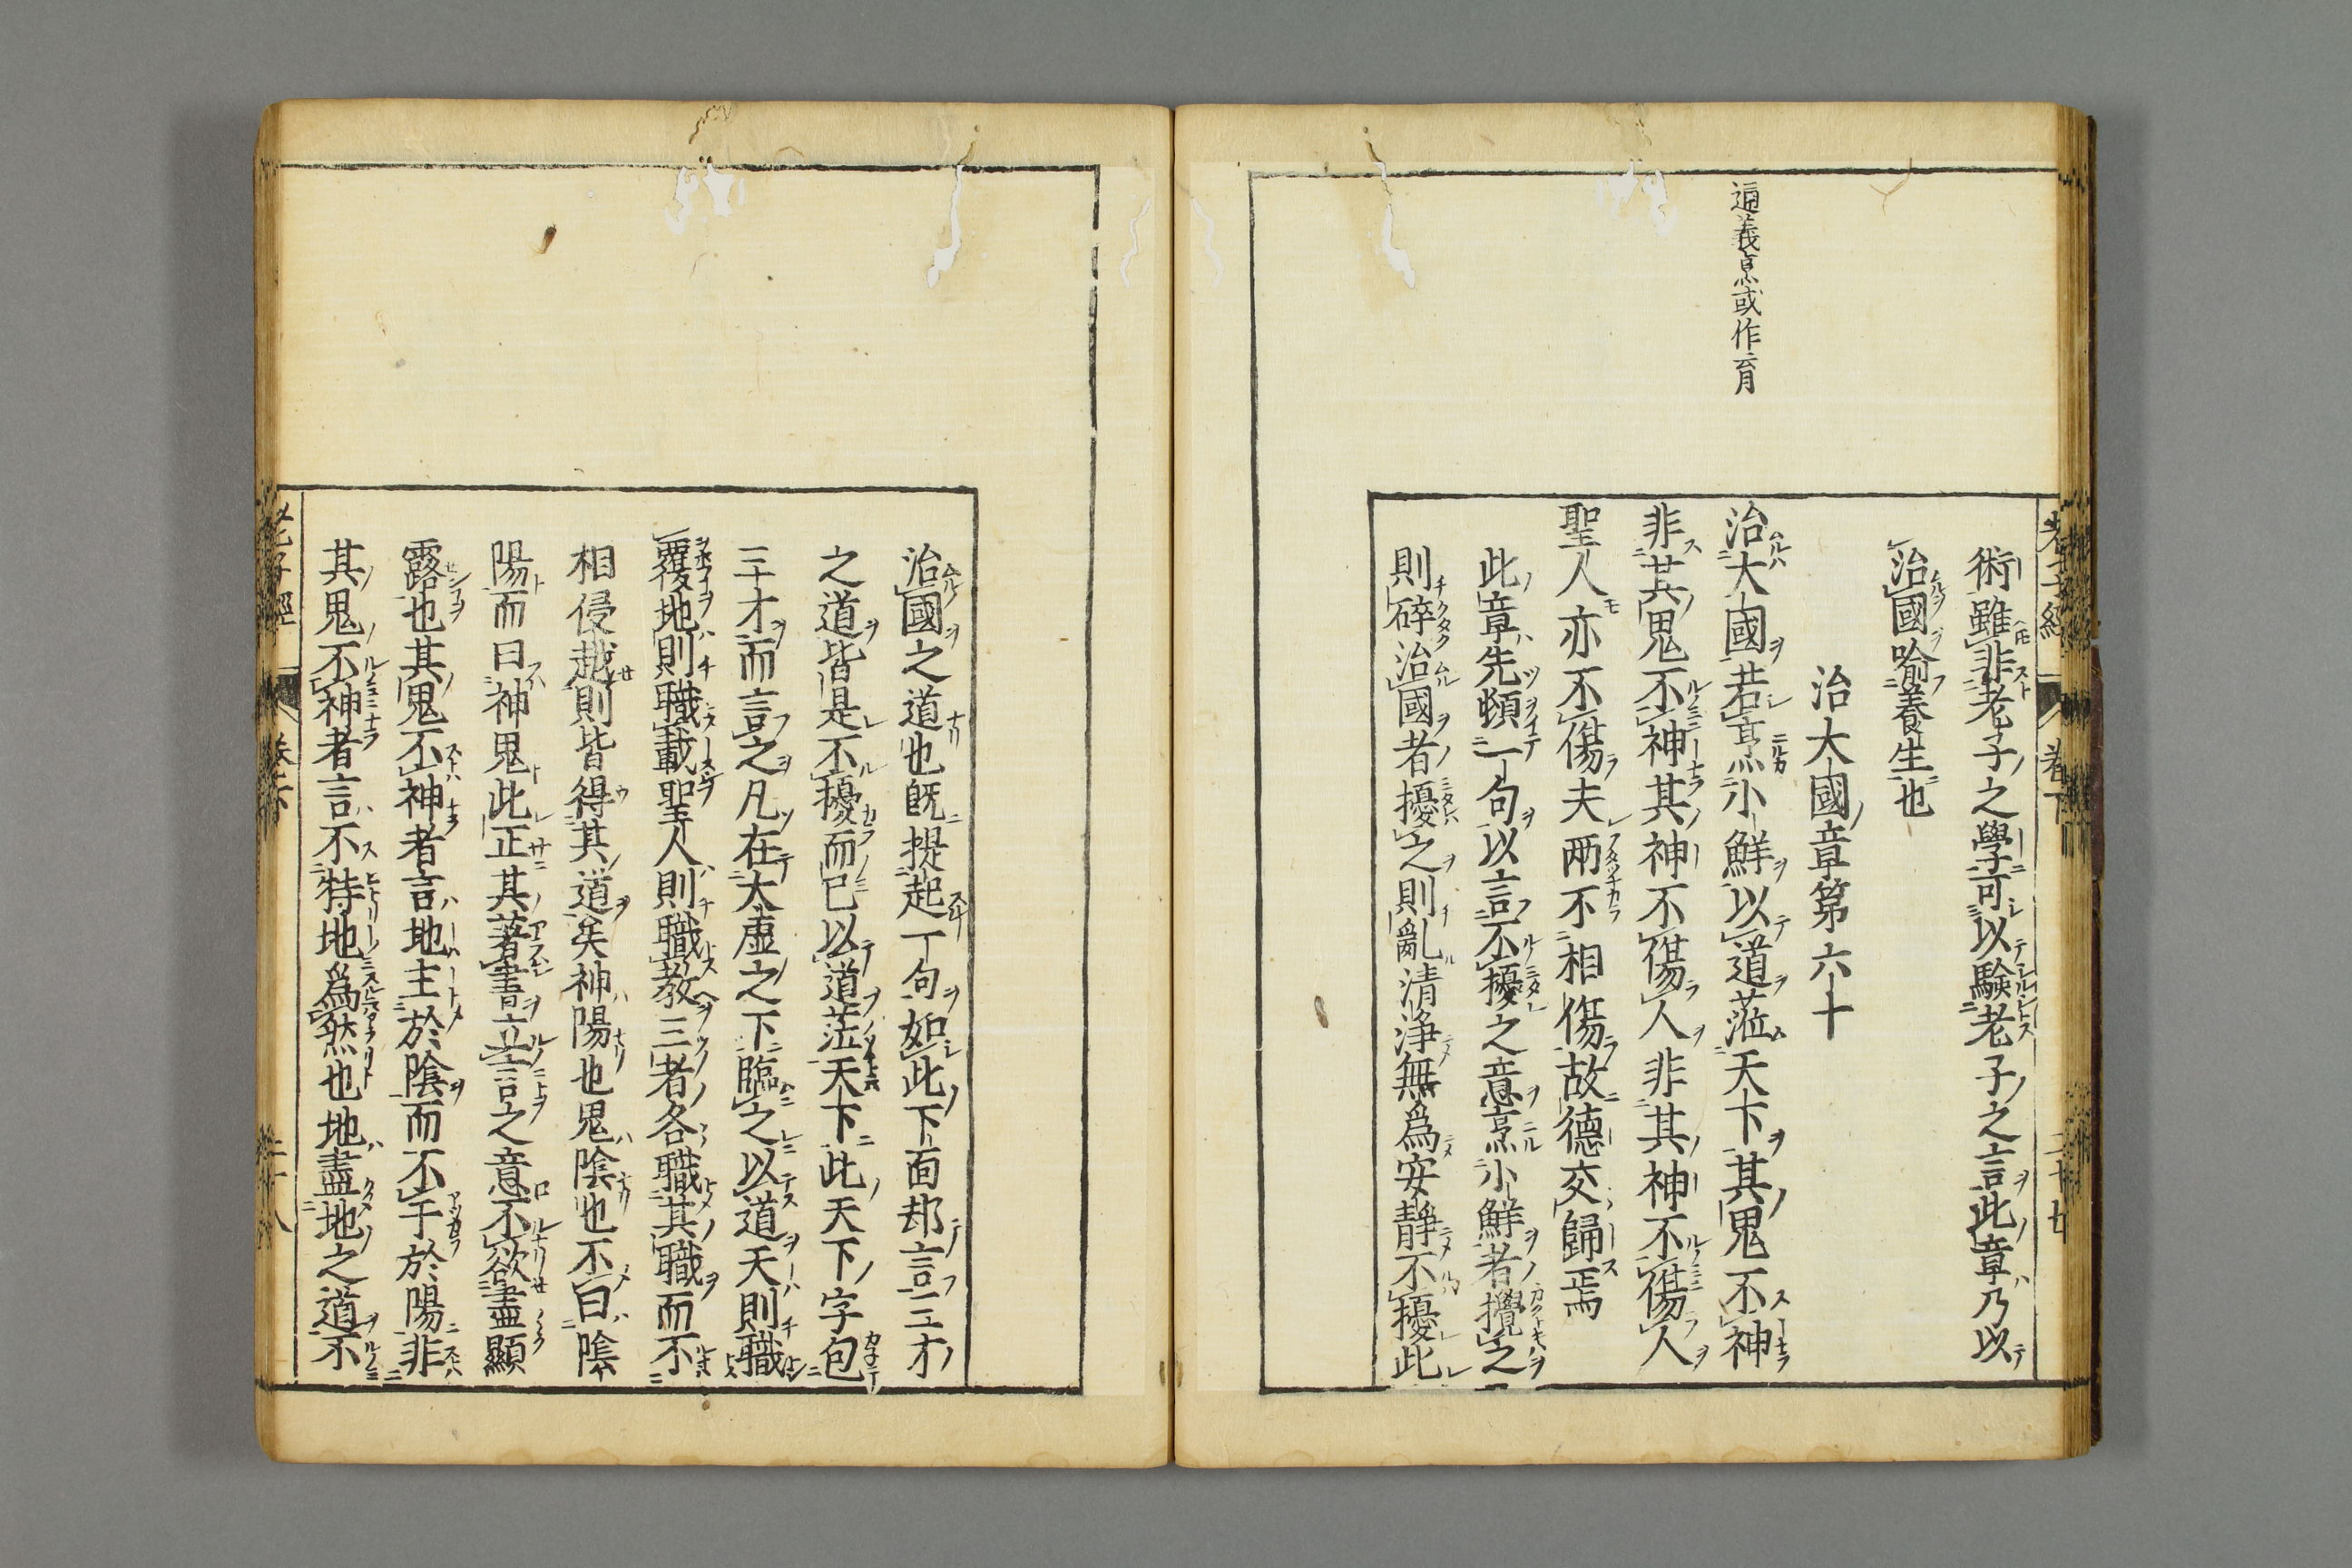 老子經 卷下 二十七
術雖非老子之學可以驗老子之言此章乃以
治國喻養生也
治大國章第六十
通義烹或作亨
治大國若烹小鮮以道蒞天下其鬼不神
非其鬼不神其神不傷人非其神不傷人
聖人亦不傷夫兩不相傷故德交歸焉
此章先頓一句以言不擾之意烹小鮮者攪之
則碎治國者擾之則亂清浄無為安靜不擾此
治國之道也既提起一句如此下面却言三才
之道皆是不擾而已以道蒞天下此天下字包
三才而言之凡在大虛之下臨之以道天則職
覆地則職載聖人則職教三者各職其職而不
相侵越則皆得其道矣神陽也鬼陰也不曰陰
陽而曰神鬼此正其著書立言之意不欲盡顯
露也其鬼不神者言地主於陰而不于於陽非
其鬼不神者言不特地為然也地盡地之道不
老子經 卷下 二十八